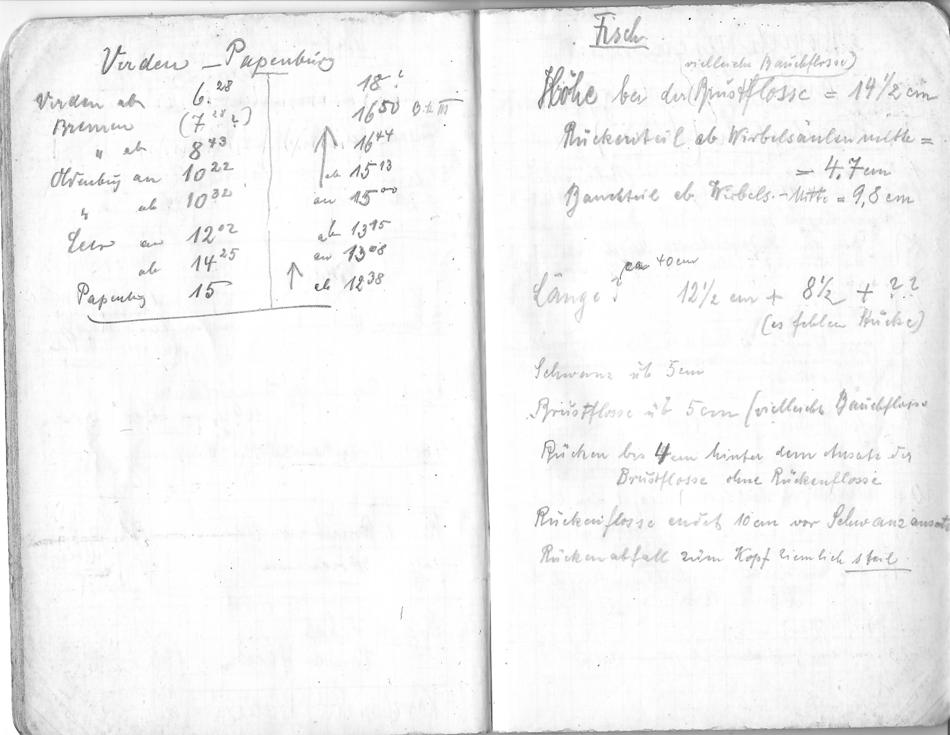 Verden – Papenburg
Verden ab 6.28 18 ?
Bremen (7 28 ?) 16 50 Bst III
" ab 8 43 16 44
Oldenburg an 10 22 ab 15 13
" ab 10 32 an 15 00
Leer an 12 02 ab 13 15
ab 14.25 an 13 08
Papenbg 15 ab 12 38
Fisch
(vielleicht Bauchflosse)
Höhe bei der Brustflosse = 14 1/2 cm
Rückenteil ab Wirbelsäulenmitte =
= 4,7 cm
Bauchteil ab Wirbels.-Mitte = 9,8 cm
ca 40 cm
Länge ? 12 1/2 cm + 8 1/2 + ? ?
(es fehlen Stücke)
Schwanz üb 5 cm
Brustflosse üb 5 cm (vielleicht Bauchflosse
Rücken bis 4 cm hinter dem Ansatz der
Brustflosse ohne Rückenflosse
Rückenflosse endet 10 cm vor Schwanzansatz
Rückenabfall zum Kopf ziemlich steil.